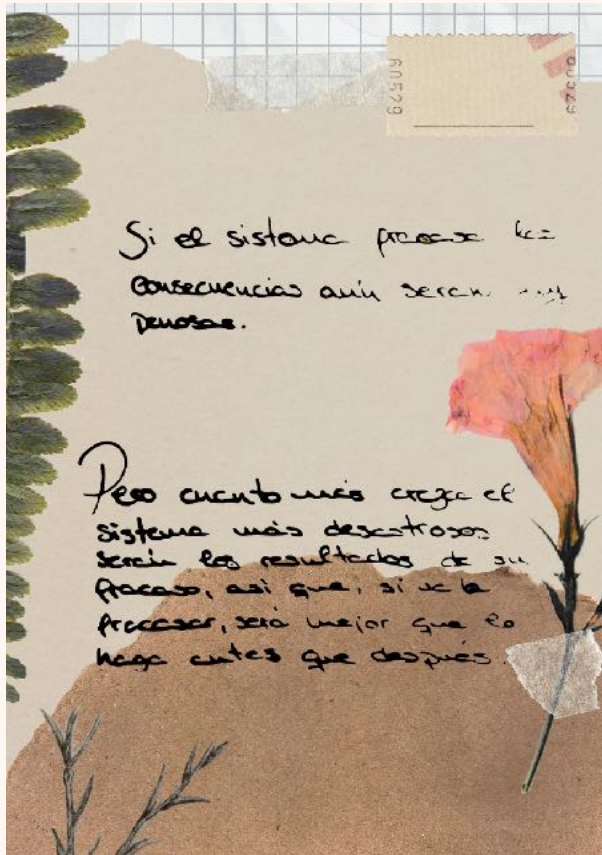 60579
60579
Si el sistema fracasa las
consecuencias aún serán muy
penosas.
Pero cuanto más crezca el
sistema más desastrosos
serán los resultados de su
fracaso, asi que, si va a
fracasar, será mejor que lo
haga antes que después.